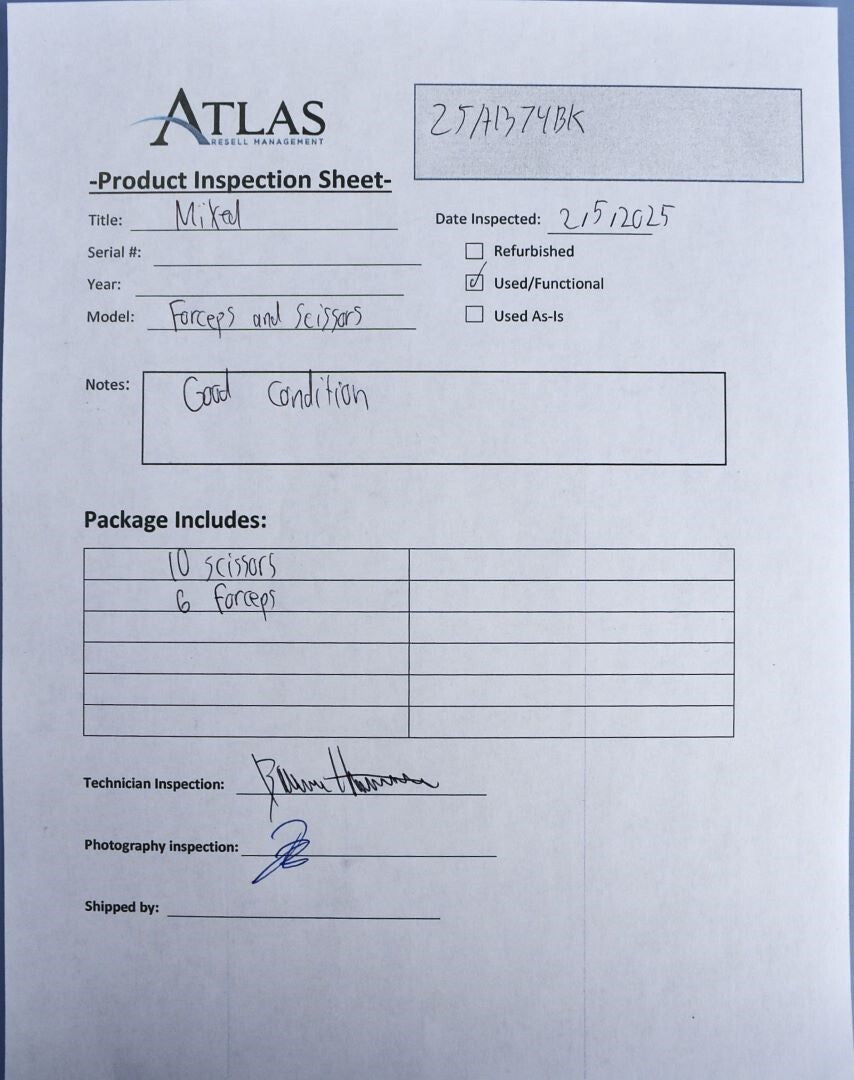 ATLAS
RESELL MANAGEMENT
25A1374BK
-Product Inspection Sheet-
Title: Mixed
Date Inspected: 2/5/2025
Serial #:
Refurbished
Year:
Used/Functional
Model: Forceps and Scissors
Used As-Is
Notes: Good Condition
Package Includes:
10 scissors
6 Forceps
Technician Inspection:
Photography inspection:
Shipped by: